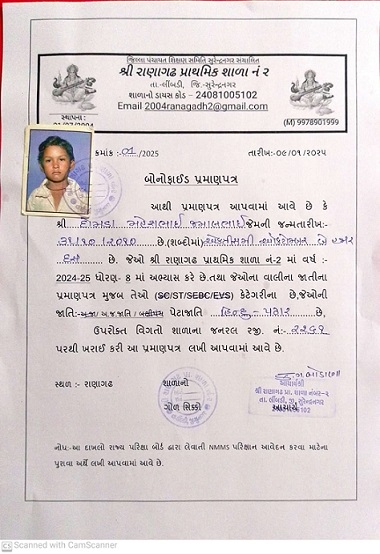 જિલ્લા પંચાયત શિક્ષણ સમિતિ સુરેન્દ્રનગર સંચાલિત
શ્રી રાણાગઢ પ્રાથમિક શાળા નં ૨
તા.-લીંબડી, જિ.-સુરેન્દ્રનગર
શાળાનો ડાયસ કોડ - 24081005102
Email 2004ranagadh2@gmail.com
સ્થાપના :-
(M) 9978901999
ક્રમાંક :- 01 /2025
તારીખ:- ૦૯/૦૧/૨૦૨૫
બોનોફાઈડ પ્રમાણપત્ર
આથી પ્રમાણપત્ર આપવામાં આવે છે કે
શ્રી જેમની જન્મતારીખ:-
૩૧/૧૦/૨૦૧૦ (શબ્દોમાં) બે હજાર
દસ છે. જેઓ શ્રી રાણાગઢ પ્રાથમિક શાળા નં-2 માં વર્ષ :-
2024-25 ધોરણ- 8 માં અભ્યાસ કરે છે.તથા જેઓના વાલીના જાતીના
પ્રમાણપત્ર મુજબ તેઓ (SC/ST/SEBC/EWS) કેટેગરીના છે,જેઓની
જાતિ- પેટાજાતિ હિન્દુ - પઢાર છે.
ઉપરોક્ત વિગતો શાળાના જનરલ રજી. નં:- ૨૨૬૧
પરથી ખરાઈ કરી આ પ્રમાણપત્ર લખી આપવામાં આવે છે.
સ્થળ :- રાણાગઢ
શાળાનો
ગોળ સિક્કો
આચાર્યશ્રી
શ્રી રાણાગઢ પ્રા. શાળા નંબર-૨
તા. લીંબડી, જી. સુરેન્દ્રનગર
આચાર્ય
નોંધ:-આ દાખલો રાજ્ય પરિક્ષા બોર્ડ દ્વારા લેવાની NMMS પરિક્ષાન આવેદન કરવા માટેના
પુરાવા અર્થે લખી આપવામાં આવે છે.
CS Scanned with CamScanner